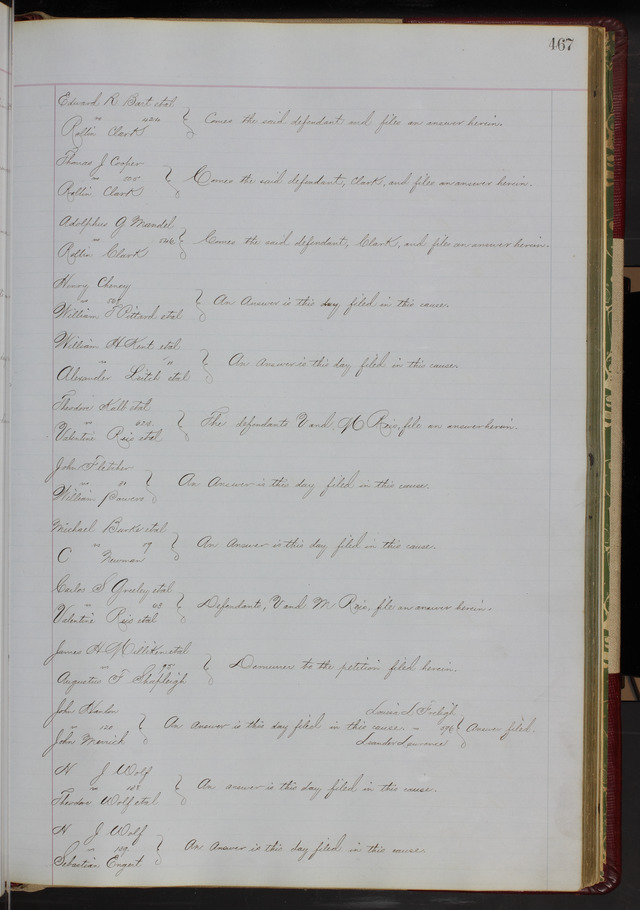 467
Edward R Bart etal
" 424
Rollin Clark
Comes the said defendant and files an answer herein.
Thomas J Cooper
"
Rollin Clark
Comes the said defendant, Clark, and files an answer herein.
Adolphus G Mandel
"
Rollin Clark
Comes the said defendant, Clark, and files an answer herein.
Henry Cheney
"
William F Pittard etal
An Answer is this day filed in this cause.
William H Kent etal
" "
Alexander Leitch etal
An Answer is this day filed in this cause.
Theodore Kalb etal
"
Valentine Reis etal
The defendants V and M Reis, file an answer herein.
John Fletcher
"
William Powers
An Answer is this day filed in this cause.
Michael Burke etal
"
C Newman
An Answer is this day filed in this cause.
Carlos S Greeley etal
" 63
Valentine Reis etal
Defendants, V and M Reis, file an answer herein.
James H Milliken etal
" 95
Augustus F Shapleigh
Demurrer to the petition filed herein.
John Hanlon
" 120
John Merrick
An Answer is this day filed in this cause.
Leander Lawrence
Answer filed.
N J Wolf
"
Theodore Wolf etal
An answer is this day filed in this cause.
N J Wolf
" 139
Sebastian Engert
An Answer is this day filed in this cause.